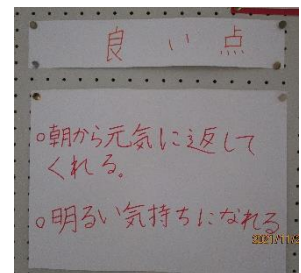 良い点
○朝から元気に返して
くれる。
○明るい気持ちになれる